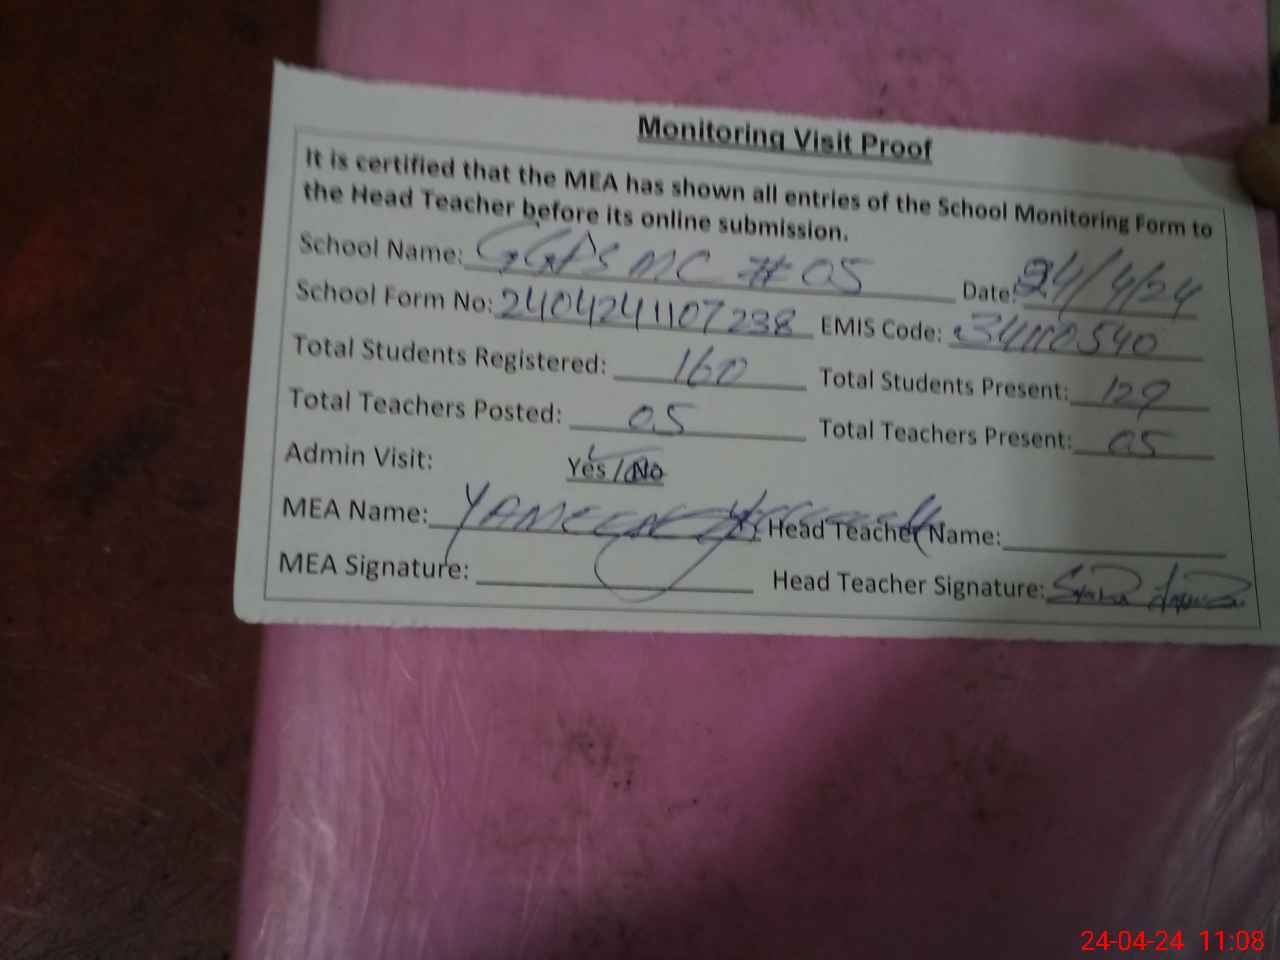 Monitoring Visit Proof
It is certified that the MEA has shown all entries of the School Monitoring Form to
the Head Teacher before its online submission.
School Name: GGPS MC # 05 Date: 24/4/24
School Form No: 2404241107238 EMIS Code: 34110540
Total Students Registered: 160 Total Students Present: 129
Total Teachers Posted: 05 Total Teachers Present: 05
Admin Visit: Yes / No
MEA Name: YAMEEN Head Teacher Name:
MEA Signature: Head Teacher Signature:
24-04-24 11:08